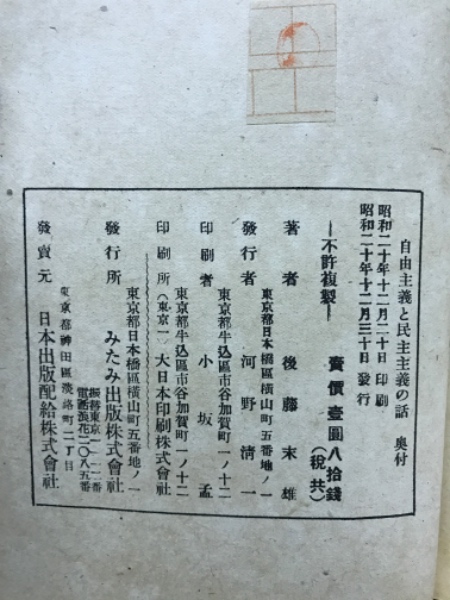 自由主義と民主主義の話 奥付
昭和二十年十二月二十日 印刷
昭和二十年十二月三十日 發行
―不許複製― 賣價壹圓八拾錢(税共)
著者 後藤末雄
東京都日本橋區橫山町五番地ノ一
發行者 河野淸一
東京都牛込區市谷加賀町一ノ十二
印刷者 小坂孟
東京都牛込區市谷加賀町一ノ十二
印刷所(東京一) 大日本印刷株式會社
東京都日本橋區橫山町五番地ノ一
發行所 みたみ出版株式會社
電話浪花二〇八五番
東京都神田區淡路町二丁目
發賣元 日本出版配給株式會社